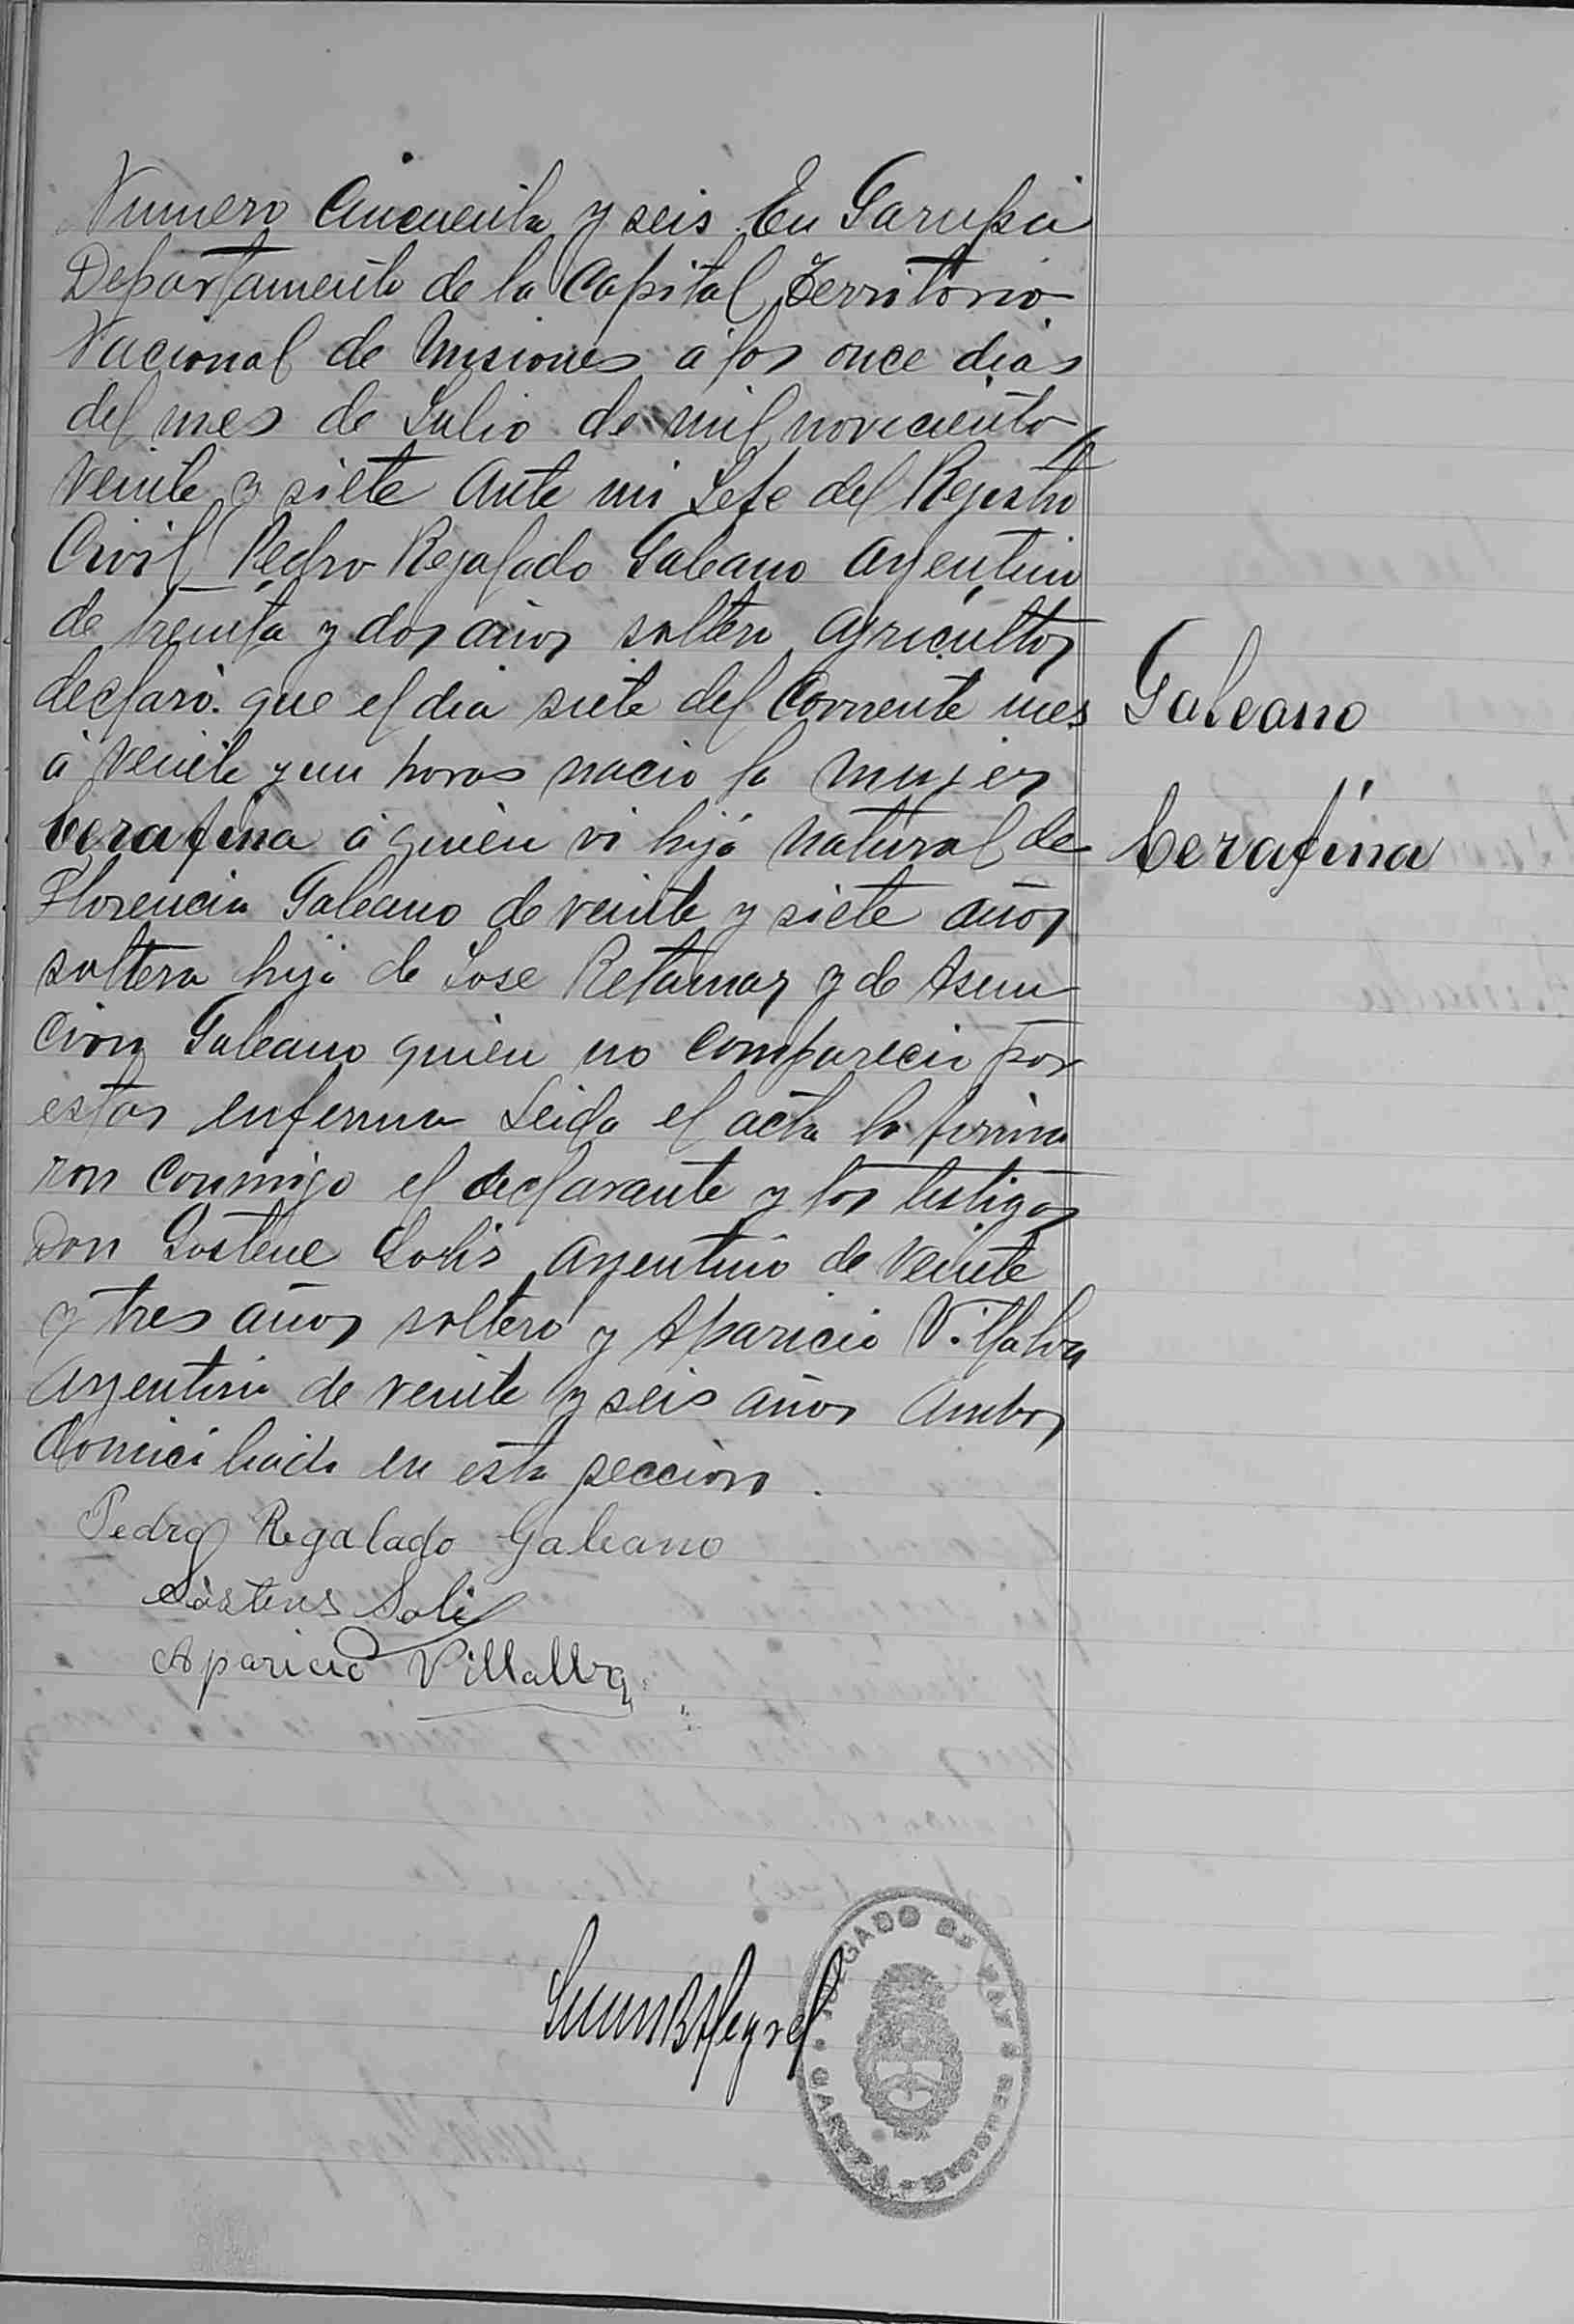 Numero Cincuenta y seis En Garupá
Departamento de la Capital Territorio
Nacional de Misiones á los once dias
del mes de Julio de mil noveciento
veinte y siete Ante mi Jefe del Rejistro
Civil Pedro Regalado Galeano Argentino
de treinta y dos años soltero agricultor
declaró. que el dia siete del Corriente mes
á veinte y un horas nacio la mujer
Cerafina á quien vi hija natural de
Florencia Galeano de veinte y siete años
soltera hija de Jose Retamar y de Asun
cion Galeano quien no comparecio por
estar enferma Leida el acta la firma
ron conmigo el declarante y los testigos
Don Sostene Solis argentino de veinte
y tres años soltero y Aparicio Villalva
argentino de veinte y seis años Ambos
domiciliado en esta seccion.
Pedro Regalado Galeano
Sóstenes Soli
Aparicio Villalba
JUZGADO DE PAZ
GARUPA
Galeano
Cerafina